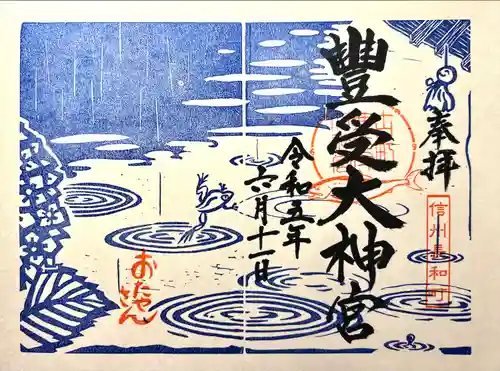 奉拝
信州長和町
豊受大神宮
令和五年
六月十一日
おたや
さん